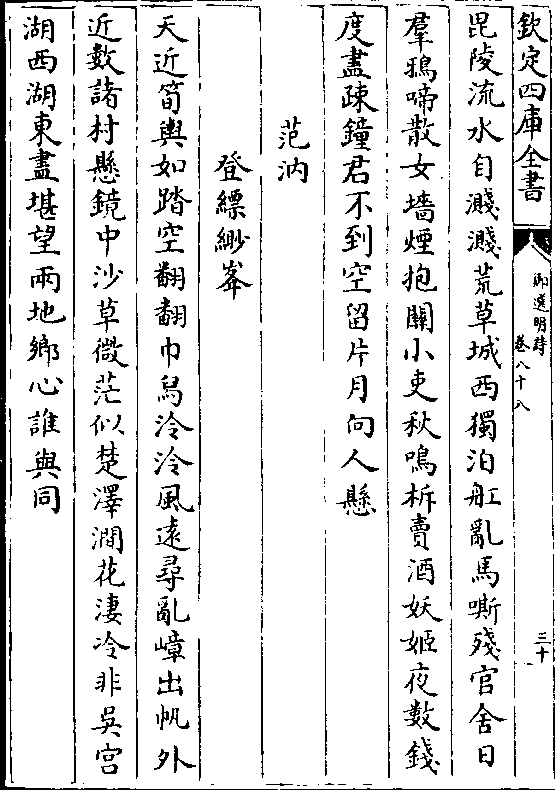 欽定四庫全書
御選明詩
卷八十八
三十
毘陵流水自濺濺荒草城西獨泊舡亂馬嘶殘官舍日
羣鴉啼散女墻煙抱關小吏秋鳴柝賣酒妖姬夜數錢
度盡疎鐘君不到空留片月向人懸
范汭
登縹緲峯
天近筍輿如踏空翻翻巾舄泠泠風遠尋亂嶂出帆外
近數諸村懸鏡中沙草微茫似楚澤澗花淒冷非吳宮
湖西湖東盡堪望兩地鄉心誰與同